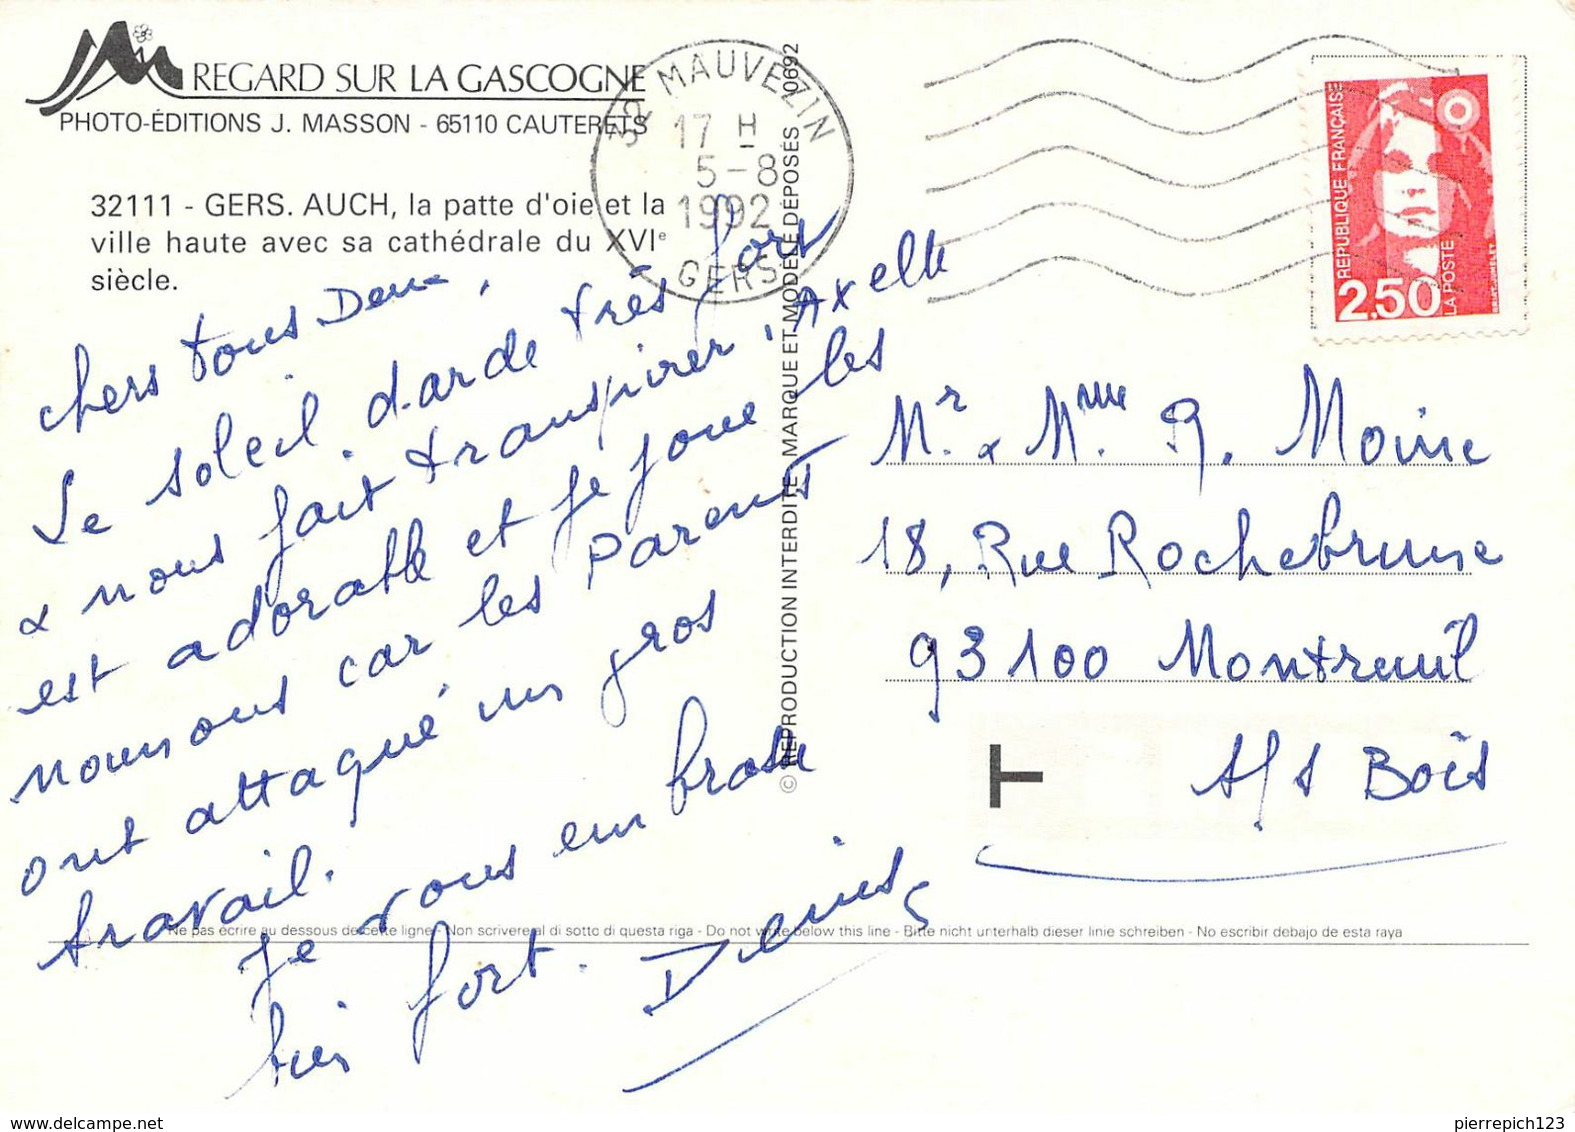 REGARD SUR LA GASCOGNE
PHOTO-ÉDITIONS J. MASSON - 65110 CAUTERETS
32111 - GERS. AUCH, la patte d'oie et la
ville haute avec sa cathédrale du XVIe
siècle.
32 MAUVEZIN
17 H
5-8
1992
GERS
RÉPUBLIQUE FRANÇAISE
2,50
LA POSTE
chers tous Deux,
Le soleil darde très fort
& nous fait transpirer, Axelle
est adorable et je joue les
nounous car les parents
ont attaqué un gros
travail.
Je vous embrasse
bien fort. Denise
© REPRODUCTION INTERDITE MARQUE ET MODÈLE DÉPOSÉS 0692
Mr & Mme G. Moine
18, Rue Rochebrune
93100 Montreuil
s/s Bois
T
Ne pas écrire au dessous de cette ligne - Non scrivere al di sotto di questa riga - Do not write below this line - Bitte nicht unterhalb dieser linie schreiben - No escribir debajo de esta raya
pierrepich123